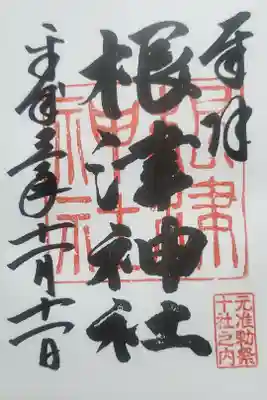 奉拝
根津神社
根津
神社
令和三年十一月十一日
元准勅祭
十社之内